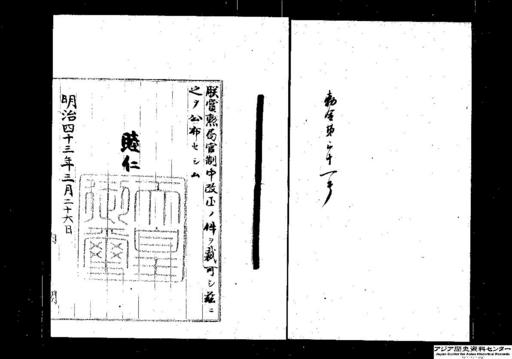 勅令第六十一号
朕賞勲局官制中改正ノ件ヲ裁可シ茲ニ
之ヲ公布セシム
睦仁
天皇御璽
明治四十三年三月二十六日
内閣
アジア歴史資料センター
Japan Center for Asian Historical Records